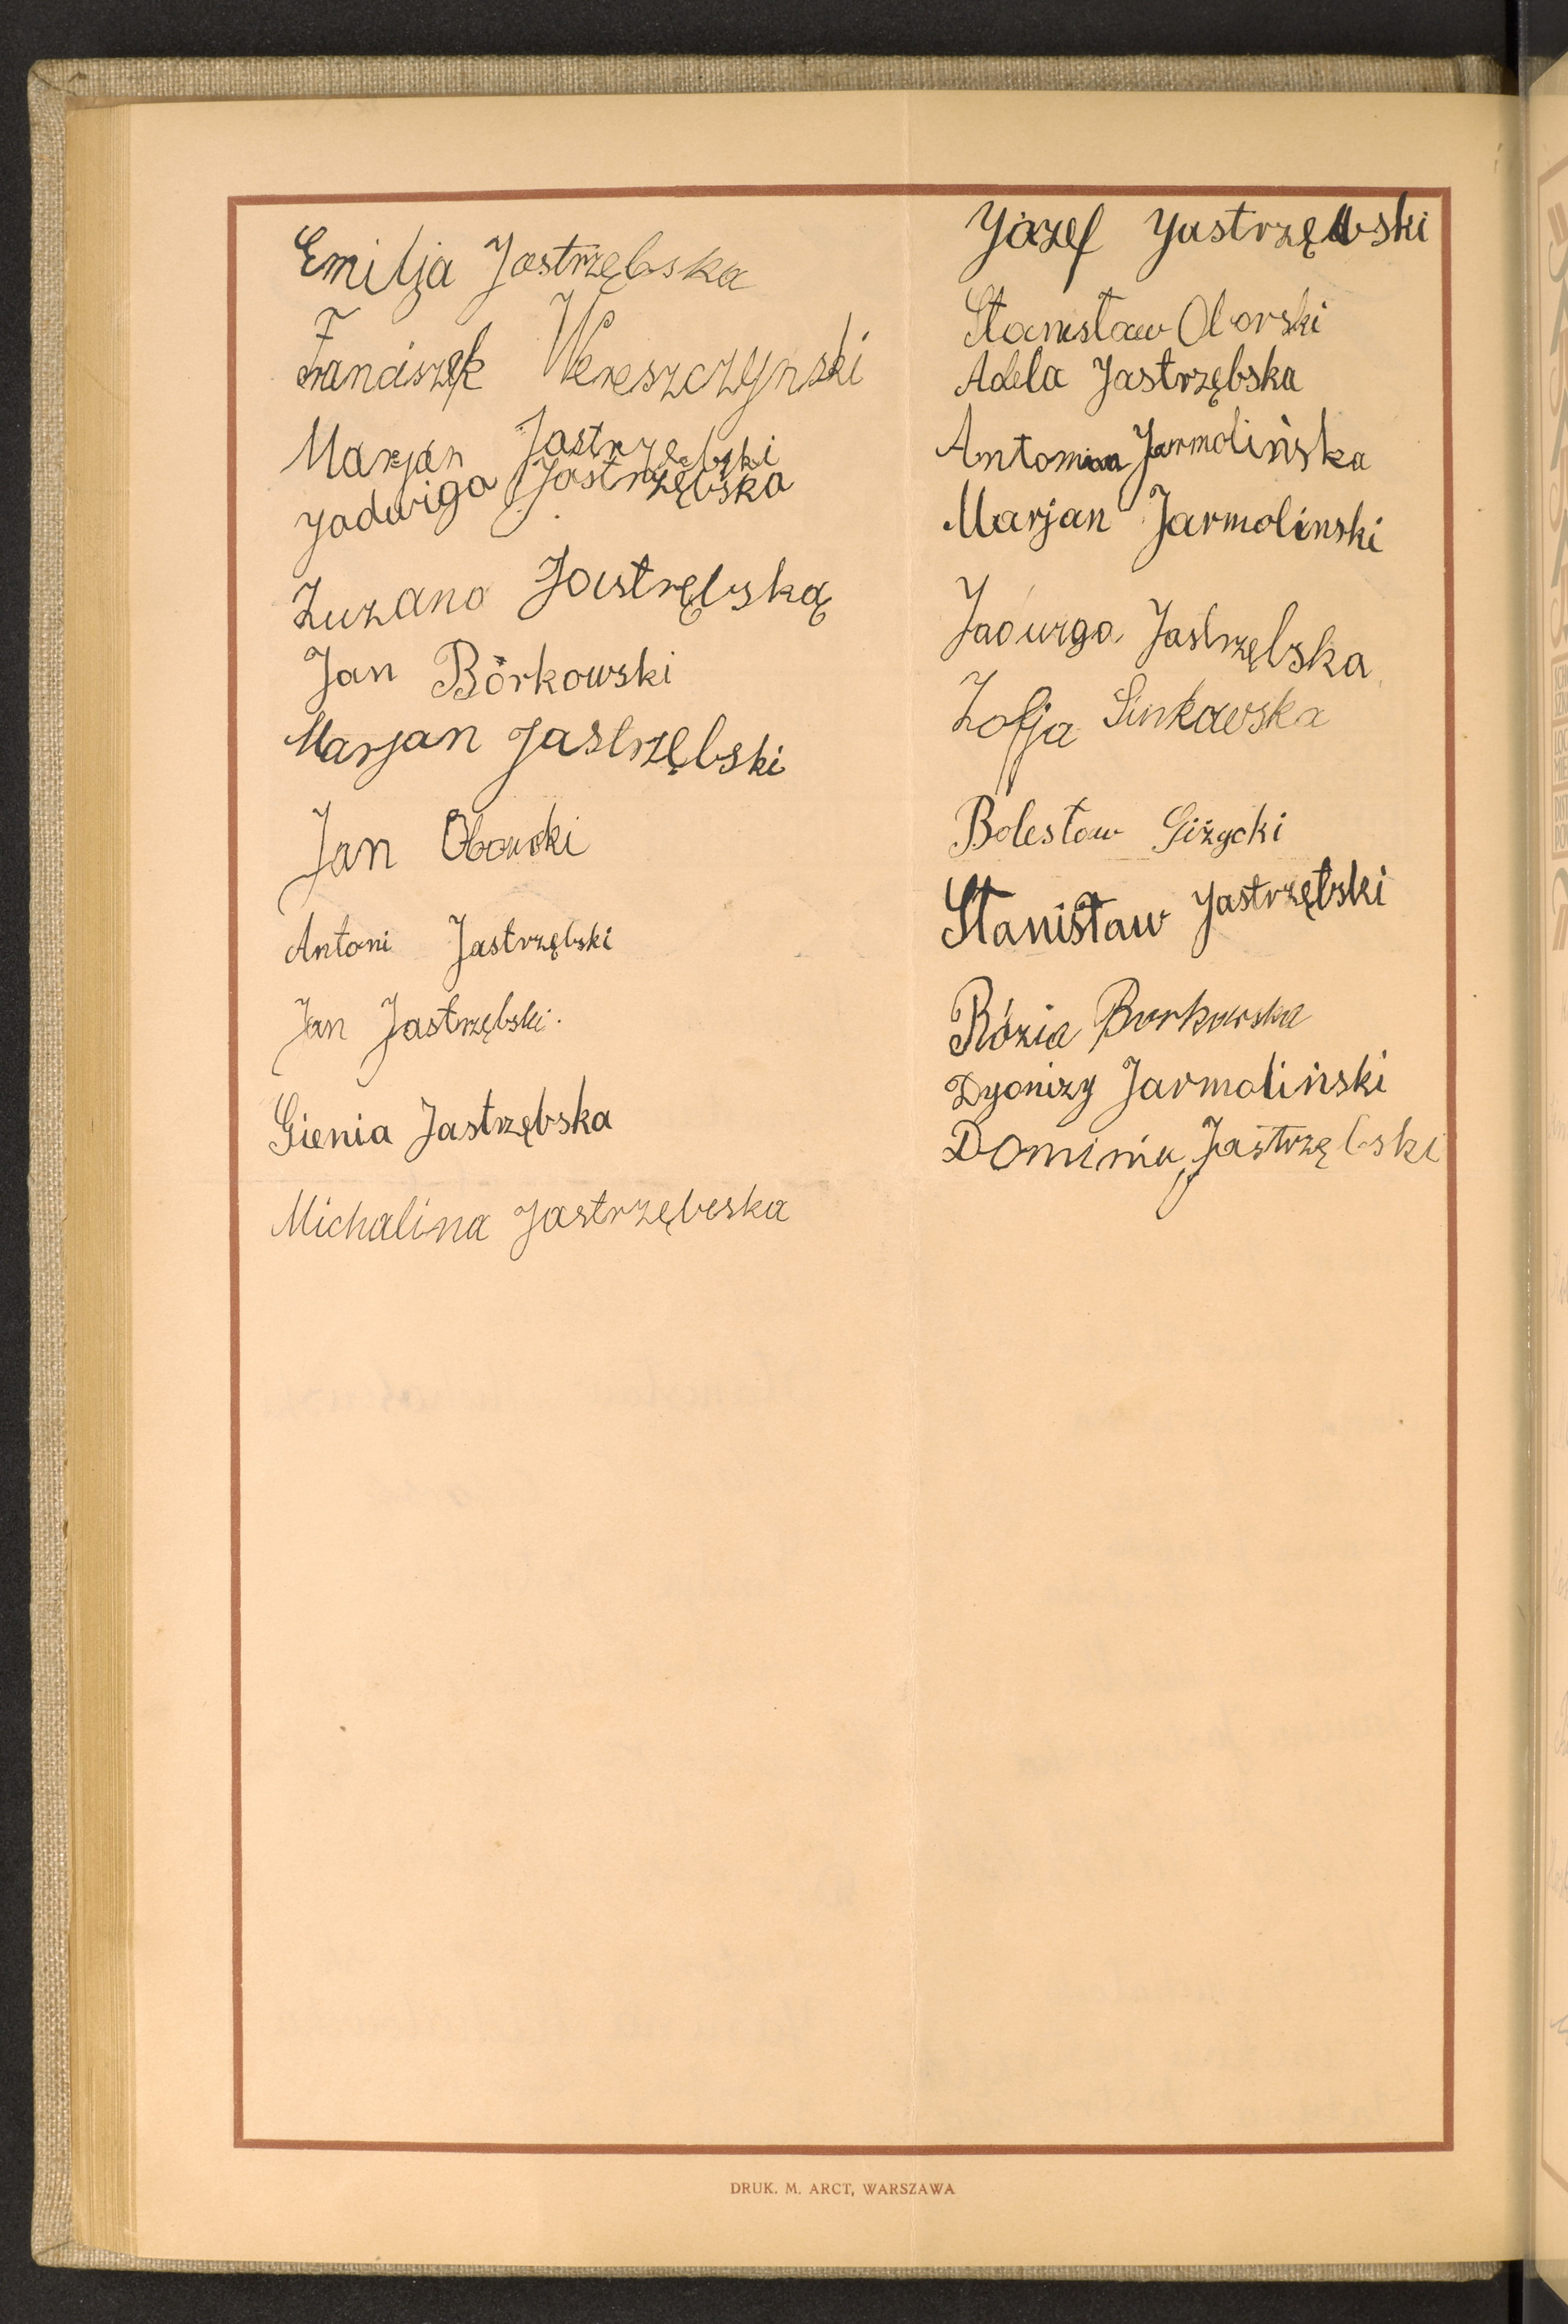 Emilja Jastrzębska
Franciszek Wereszczynski
Marjan Jastrzębski
Jadwiga Jastrzębska
Zuzana Jastrębską
Jan Borkowski
Marjan Jastrzębski
Jan Oborski
Antoni Jastrzębski
Jan Jastrzębski.
Gienia Jastrzębska
Michalina Jastrzębska
Józef Jastrzębski
Stanisław Oborski
Adela Jastrzębska
Antonina Jarmolińska
Marjan Jarmolinski
Jadwiga Jastrzębska
Zofja Sinkowska
Bolesław Giżycki
Stanisław Jastrzębski
Rózia Borkowska
Dyonizy Jarmoliński
Jastrzębski
DRUK. M. ARCT, WARSZAWA